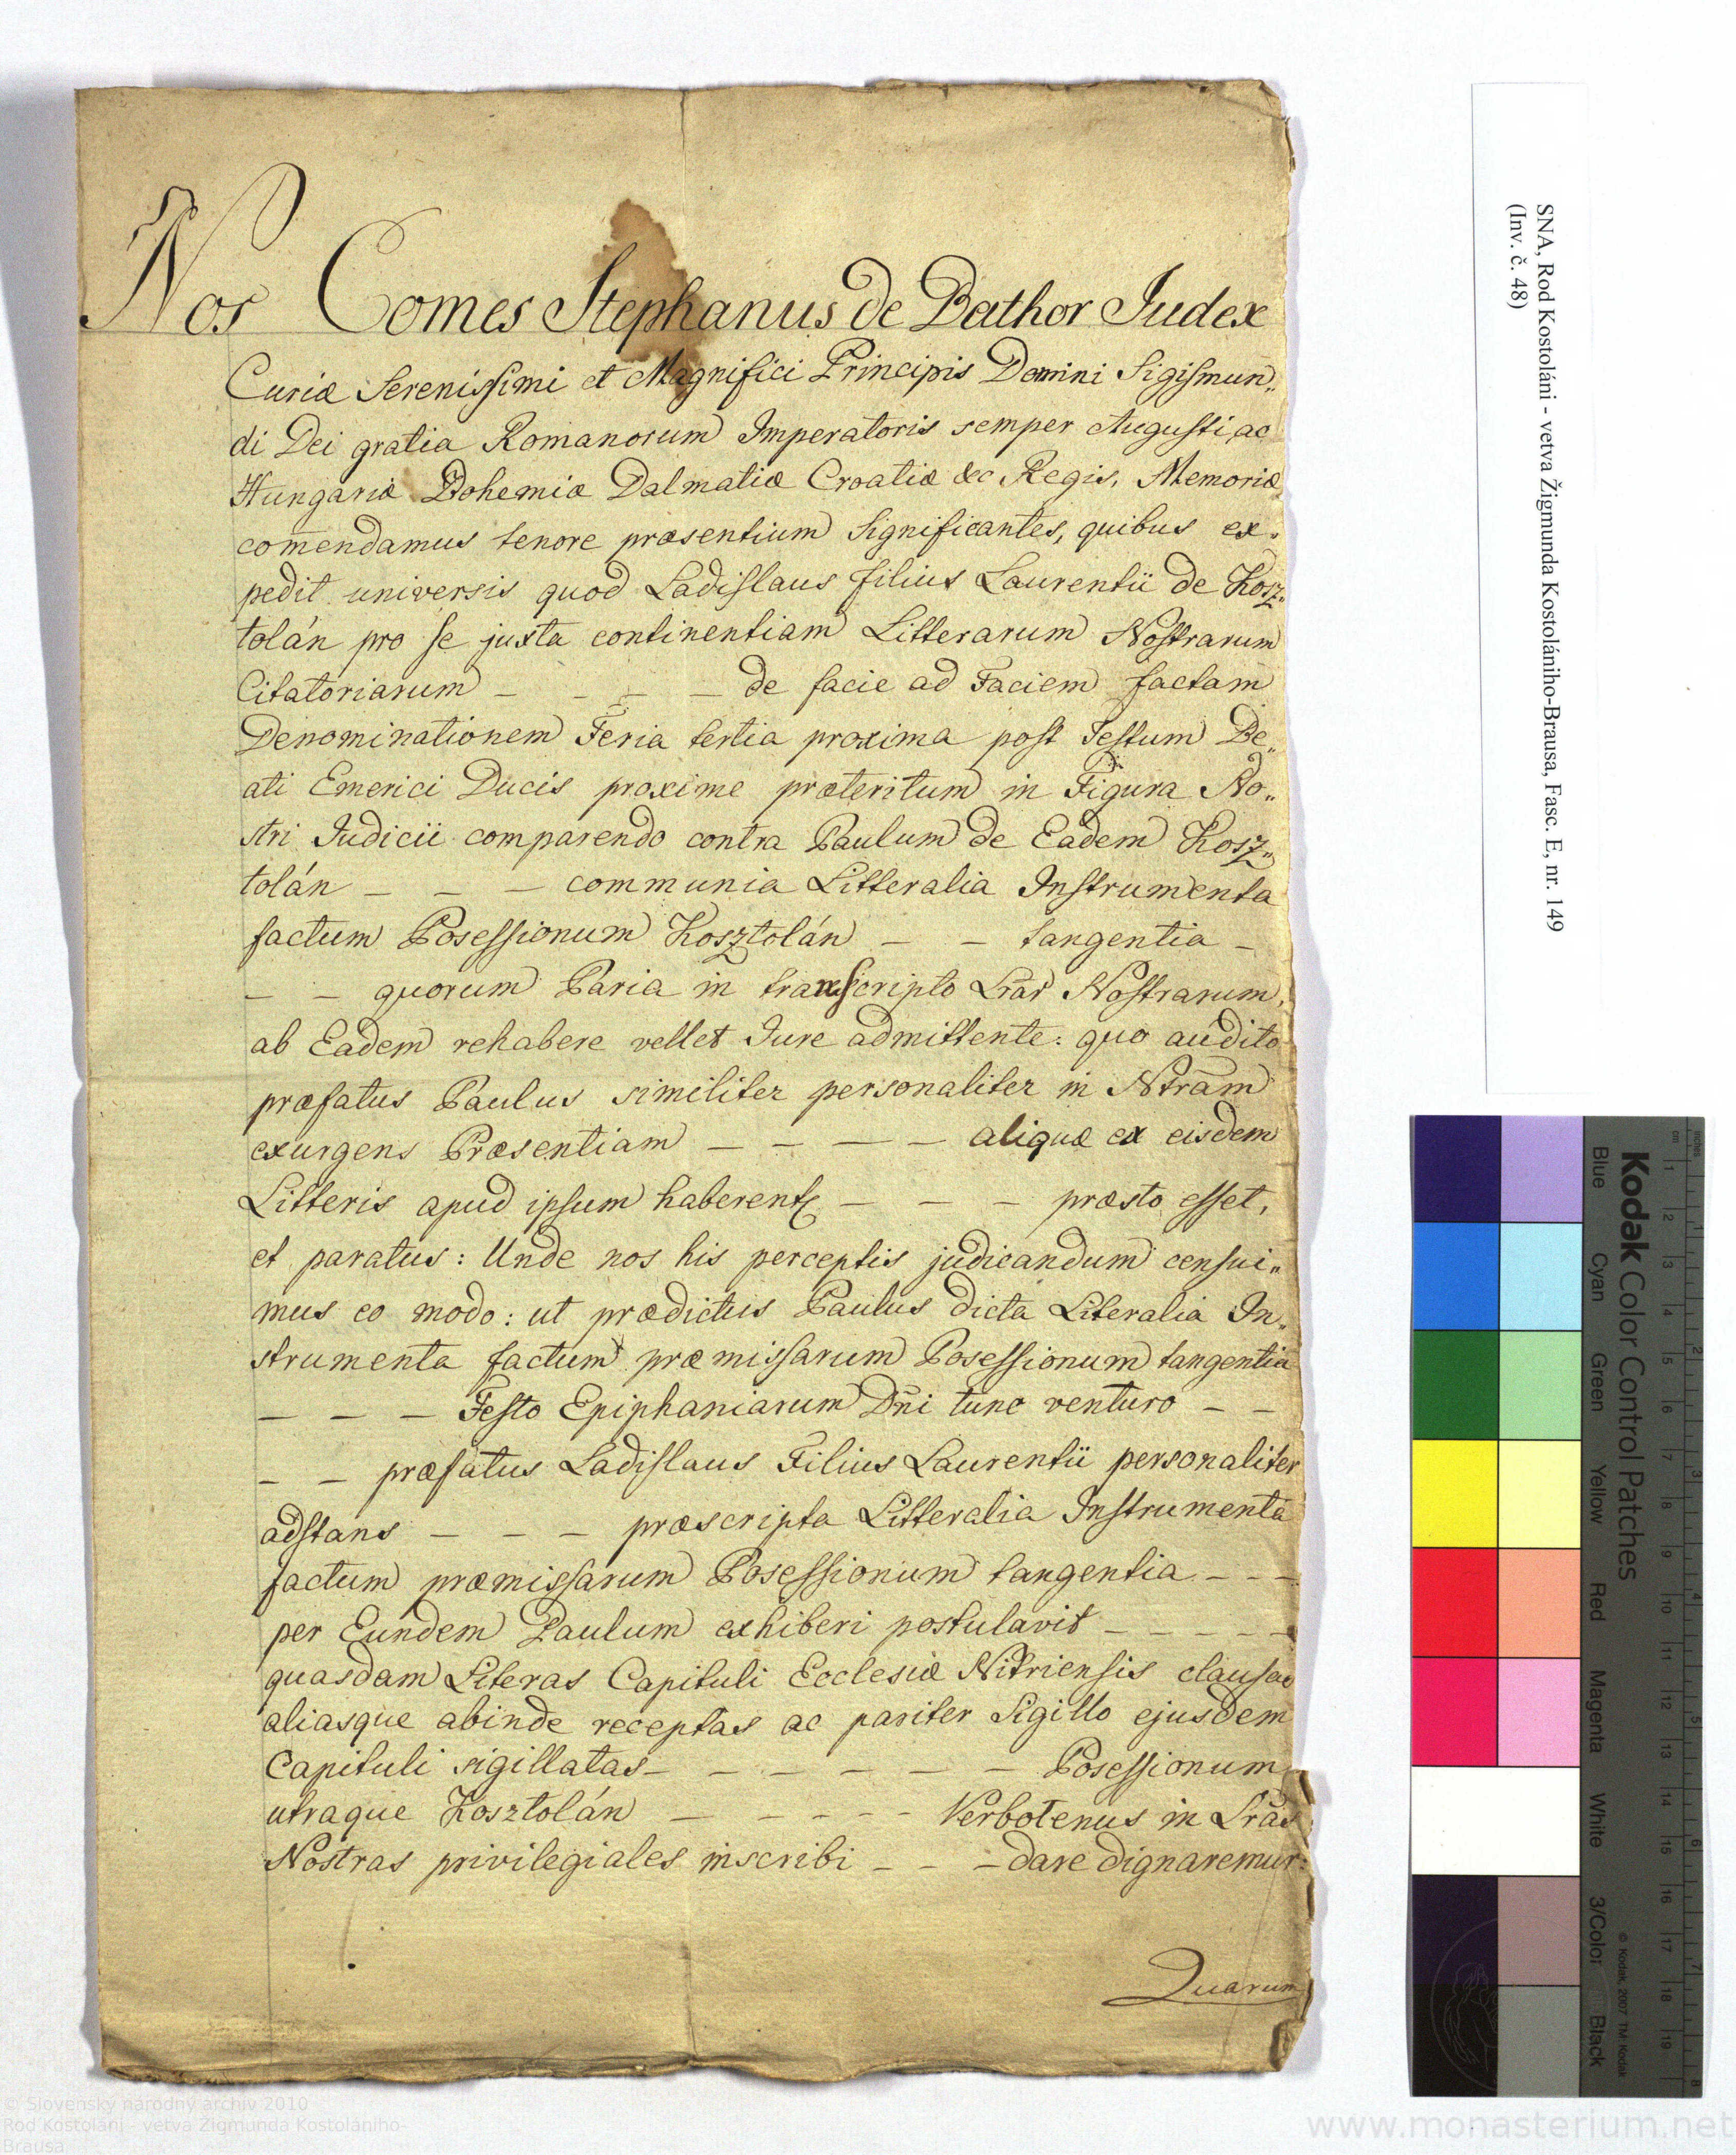 Nos Comes Stephanus de Bathor Judex
Curiæ Serenissimi et Magnifici Principis Domini Sigismun„
di Dei gratia Romanorum Imperatoris semper Augusti, ac
Hungariæ Bohemiæ Dalmatiæ Croatiæ &c Regis, Memoriæ
com̄endamus tenore præsentium Significantes, quibus ex„
pedit universis quod Ladislaus filius Laurentii de Kosz„
tolán pro se juxta continentiam Litterarum Nostrarum
Citatoriarum – – – – de facie ad Faciem factam
Denominationem Feria tertia proxima post Festum Be„
ati Emerici Ducis proxime præteritum in Figura No„
stri Judicii comparendo contra Paulum de Eadem Kosz„
tolán – – – communia Litteralia Instrumenta
factum Posessionum Kosztolán – – tangentia –
– – quorum Paria in transcripto Lrãr Nostrarum,
ab Eadem rehabere vellet Jure admittente: quo audito
præfatus Paulus similiter personaliter in Ntrãm
exurgens Præsentiam – – – – aliquæ ex eisdem
Litteris apud ipsum haberent – – – præsto esset,
et paratus: Unde nos his perceptis judicandum censui„
mus eo modo: ut prædictus Paulus dicta Literalia In„
strumenta factum præmissarum Posessionum tangentia
– – – Festo Epiphaniarum Dn̄i tunc venturo – –
– – præfatus Ladislaus Filius Laurentii personaliter
adstans – – – præscripta Litteralia Instrumenta
factum præmissarum Posessionum tangentia – – –
per Eundem Paulum exhiberi postulavit – – – – –
quasdam Literas Capituli Ecclesiæ Nitriensis clausas
aliasque abinde receptas ac pariter Sigillo ejusdem
Capituli sigillatas – – – – – – Posessionum
utraque Kosztolán – – – – – Verbotenus in Lrãs
Nostras privilegiales inscribi – – – dare dignaremur:
Quarum
SNA, Rod Kostoláni - vetva Žigmunda Kostolániho-Brausa, Fasc. E, nr. 149
(Inv. č. 48)
Kodak Color Control Patches
Blue Cyan Green Yellow Red Magenta White 3/Color Black
© Kodak, 2007 TM: Kodak
cm 1 2 3 4 5 6 7 8 9 10 11 12 13 14 15 16 17 18 19
inches 1 2 3 4 5 6 7 8
© Slovenský národný archív 2010
Rod Kostoláni - vetva Žigmunda Kostolániho-
Brausa
www.monasterium.net